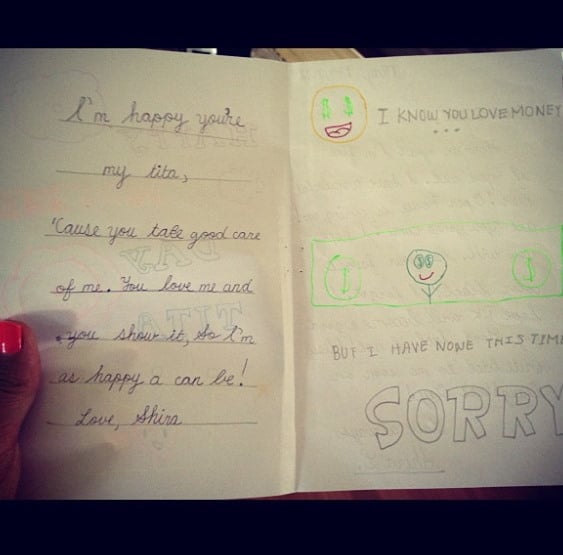 I'm happy you're
my tita,
'Cause you take good care
of me. You love me and
you show it, So I'm
as happy a can be!
Love, Shira
I KNOW YOU LOVE MONEY
...
$ $
BUT I HAVE NONE THIS TIME
SORRY